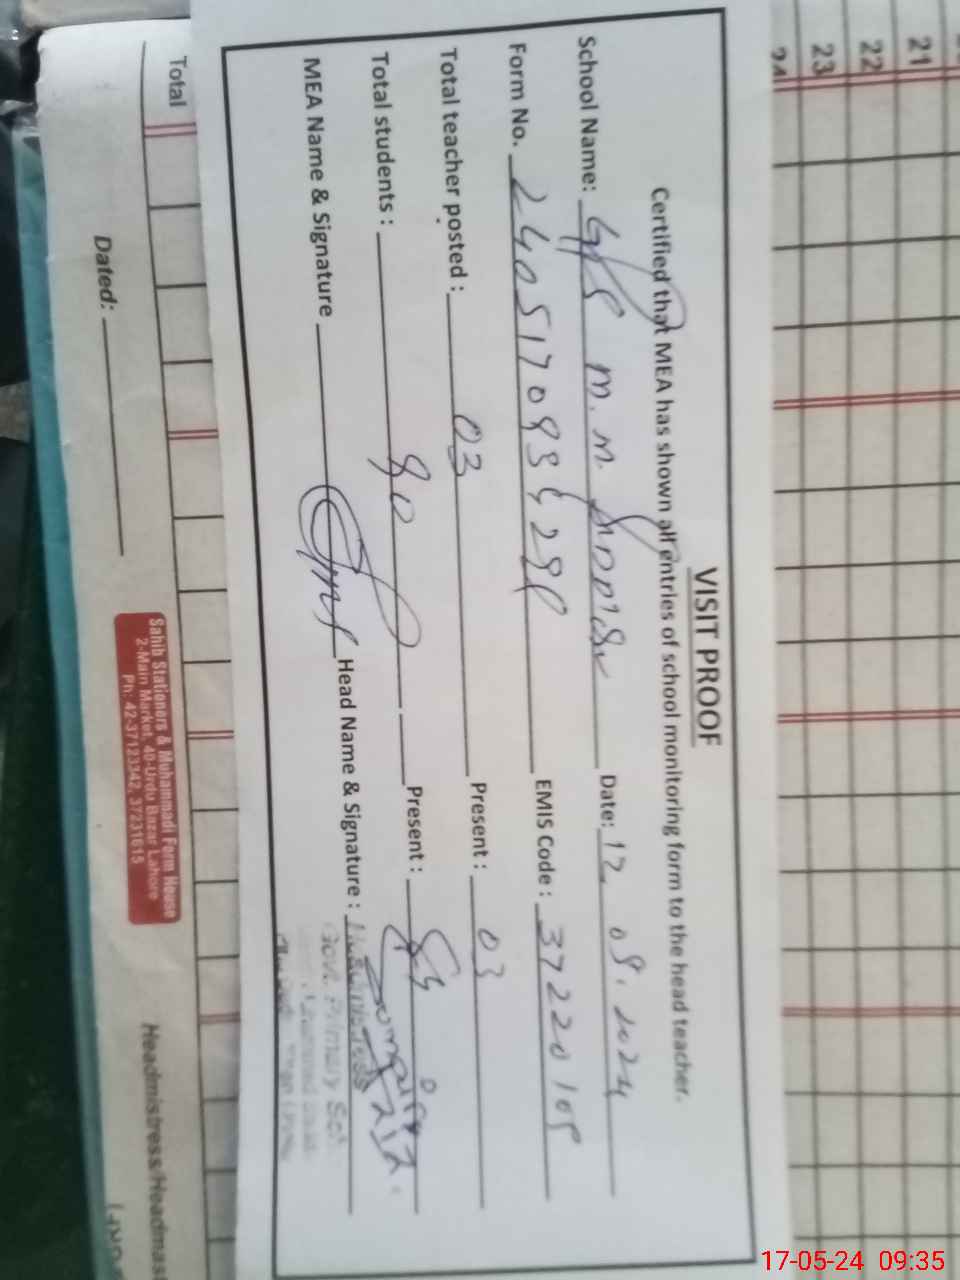 21
22
23
24
VISIT PROOF
Certified that MEA has shown all entries of school monitoring form to the head teacher.
School Name: GPS M. M. Date: 17. 05. 2024
Form No. EMIS Code: 37220105
Total teacher posted: 03 Present: 03
Total students: 90 Present:
MEA Name & Signature Head Name & Signature: Headmistress
Govt. Primary Sch
Total
Dated:
Headmistress/Headmas
Sahib Stationors & Muhammadi Form House
2-Main Market, 40-Urdu Bazar Lahore
Ph: 42-37123342, 37231615
17-05-24 09:35